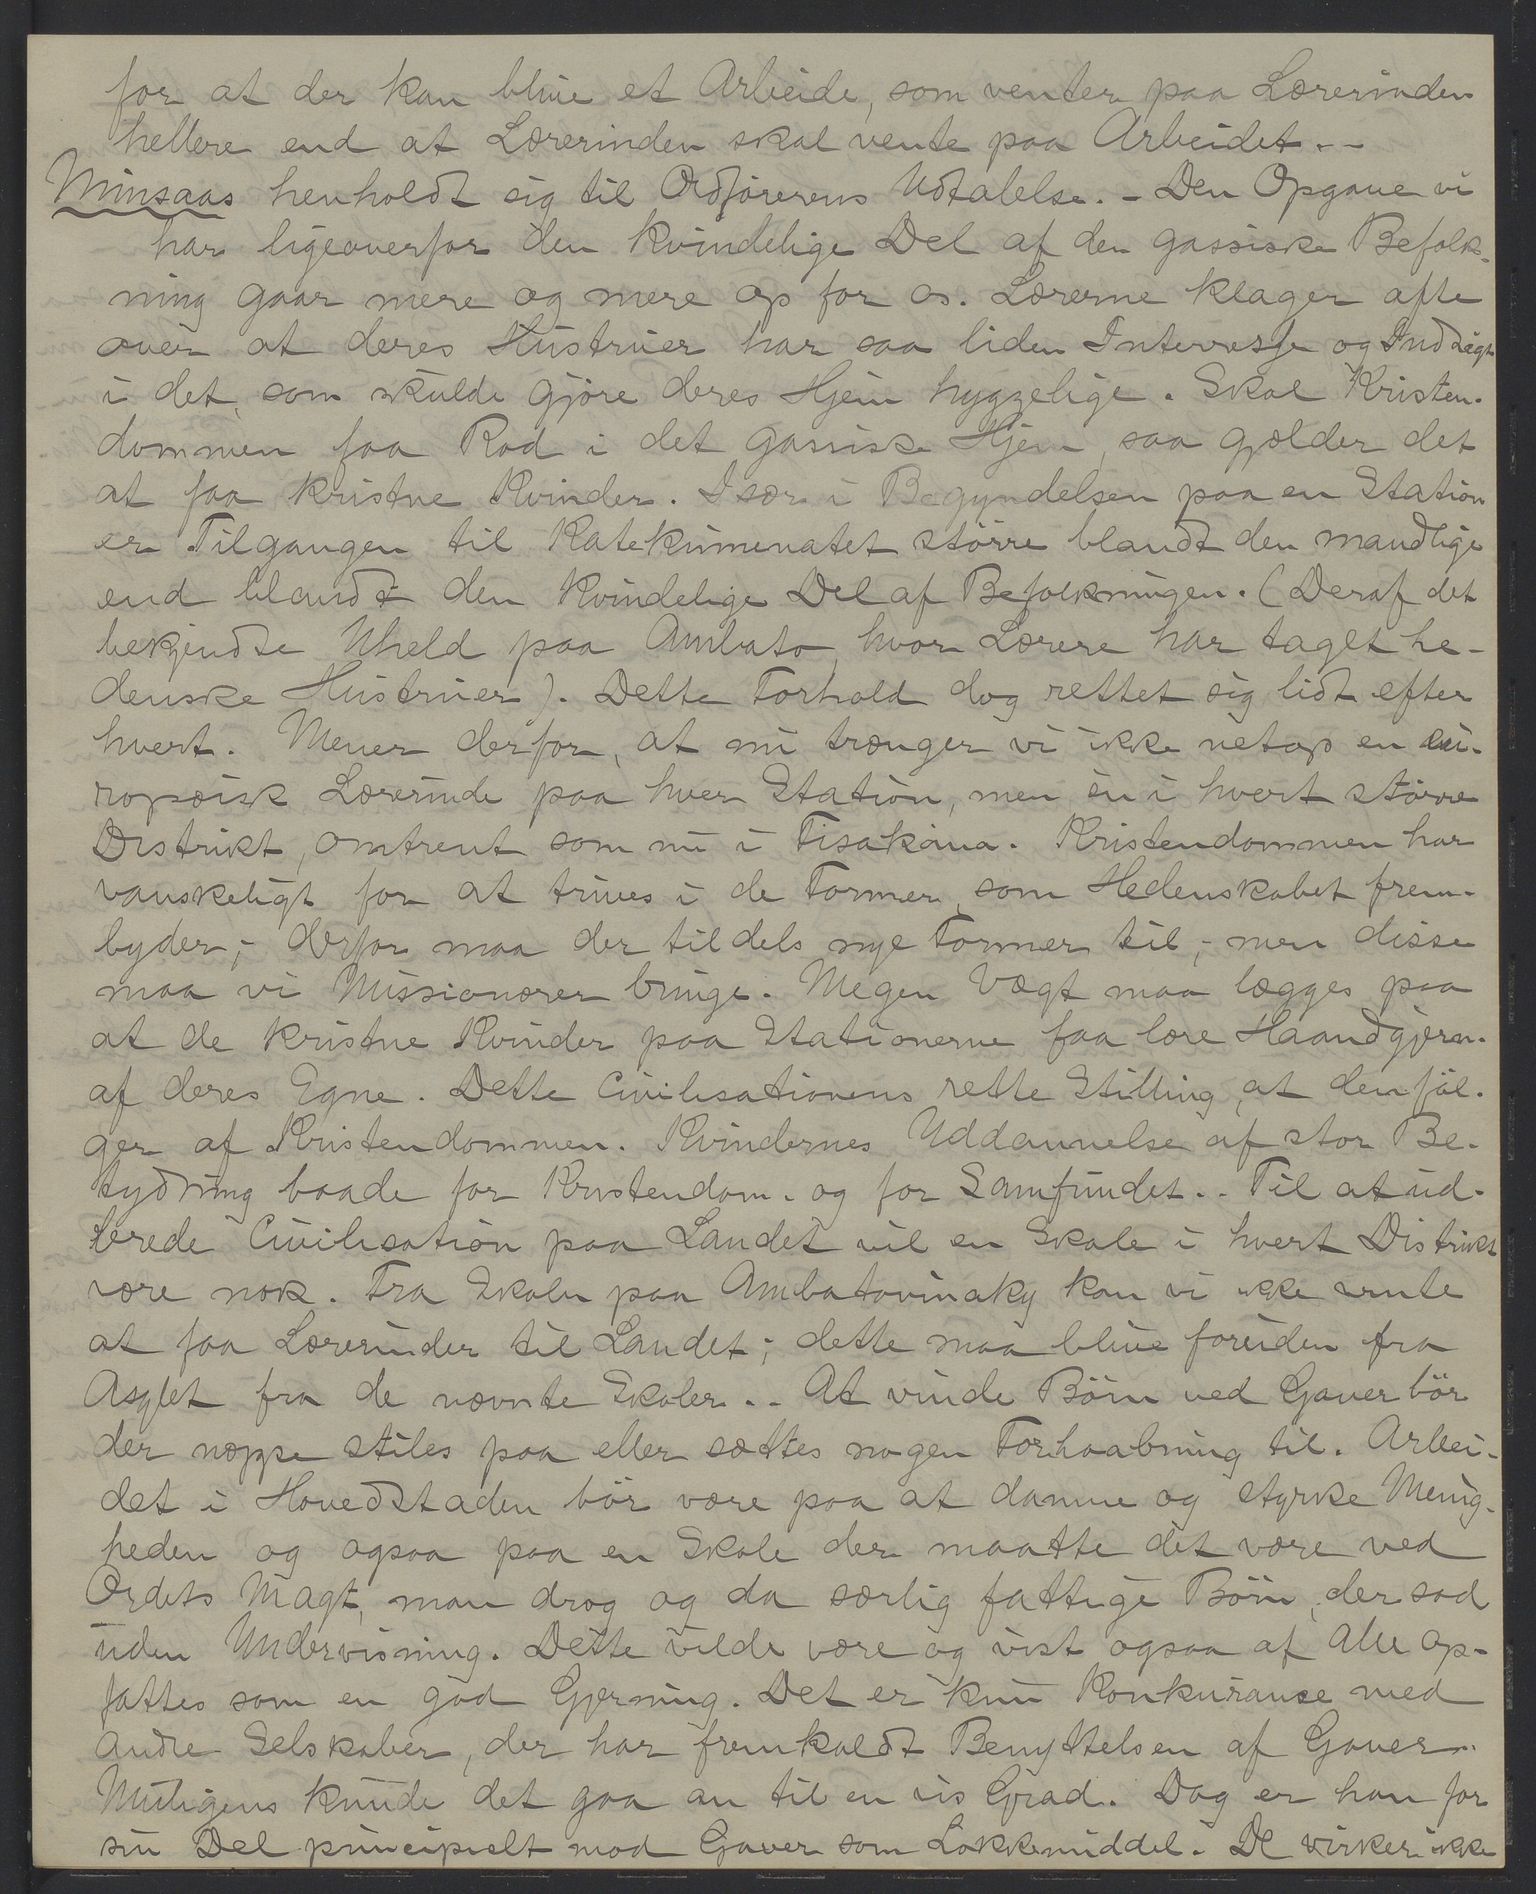 for at der kan blive et Arbeide, som venter paa Lærerinden
hellere end at Lærerinden skal vente paa Arbeidet. -
Minsaas henholdt sig til Ordførerens Udtalelse. - Den Opgave vi
har ligeoverfor den kvindelige Del af den gassiske Befolk-
ning gaar mere og mere op for os. Lærerne klager ofte
over at deres Hustruer har saa liden Interresse og Indsigt
i det, som skulde gjöre deres Hjem hyggelige. Skal Kristen-
dommen faa Rod i det gassiske Hjem, saa gjælder det
at faa kristne Kvinder. Især i Begyndelsen paa en Station
er Tilgangen til Katekumenatet större blandt den mandlige
end blandt den kvindelige Del af Befolkningen. (Deraf det
bekjendte Uheld paa Ambato, hvor Lærere har taget he-
denske Hustruer). Dette Forhold dog rettet sig lidt efter
hvert. Mener derfor, at nu trænger vi ikke netop en eu-
ropæisk Lærerinde paa hver Station, men en i hvert större
Distrikt, omtrent som nu i Fisakana. Kristendommen har
vanskeligt for at trives i de Former, som Hedenskabet frem-
byder; derfor maa der tildels nye Former til; men disse
maa vi Missionærer bringe. Megen Vægt maa lægges paa
at de kristne Kvinder paa Stationerne faa lære Haandgjern.
af deres Egne. Dette Civilisationens rette Stilling, at den föl-
ger af Kristendommen. Kvindernes Uddannelse af stor Be-
tydning baade for Kristendom. og for Samfundet. - Til at ud-
brede Civilisation paa Landet vil en Skole i hvert Distrikt
være nok. Fra Skolen paa Ambatovinaky kan vi ikke vente
at faa Lærerinder til Landet; dette maa blive foruden fra
Asylet fra de nævnte Skoler. - At vinde Börn ved Gaver bör
der neppe stiles paa eller sættes nogen Forhaabning til. Arbei-
det i Hovedstaden bör være paa at danne og styrke Menig-
heden og ogsaa paa en Skole der maatte det være ved
Ordets Magt, man drog og da særlig fattige Börn, der sad
uden Undervisning. Dette vilde være og vist ogsaa af alle op-
fattes som en god Gjerning. Det er kun Konkurance med
andre Selskaber, der har fremkaldt Benyttelsen af Gaver.
Muligens kunde det gaa an til en vis Grad. Dog er han for
sin Del principielt mod Gaver som Lokkemiddel. De virker ikke